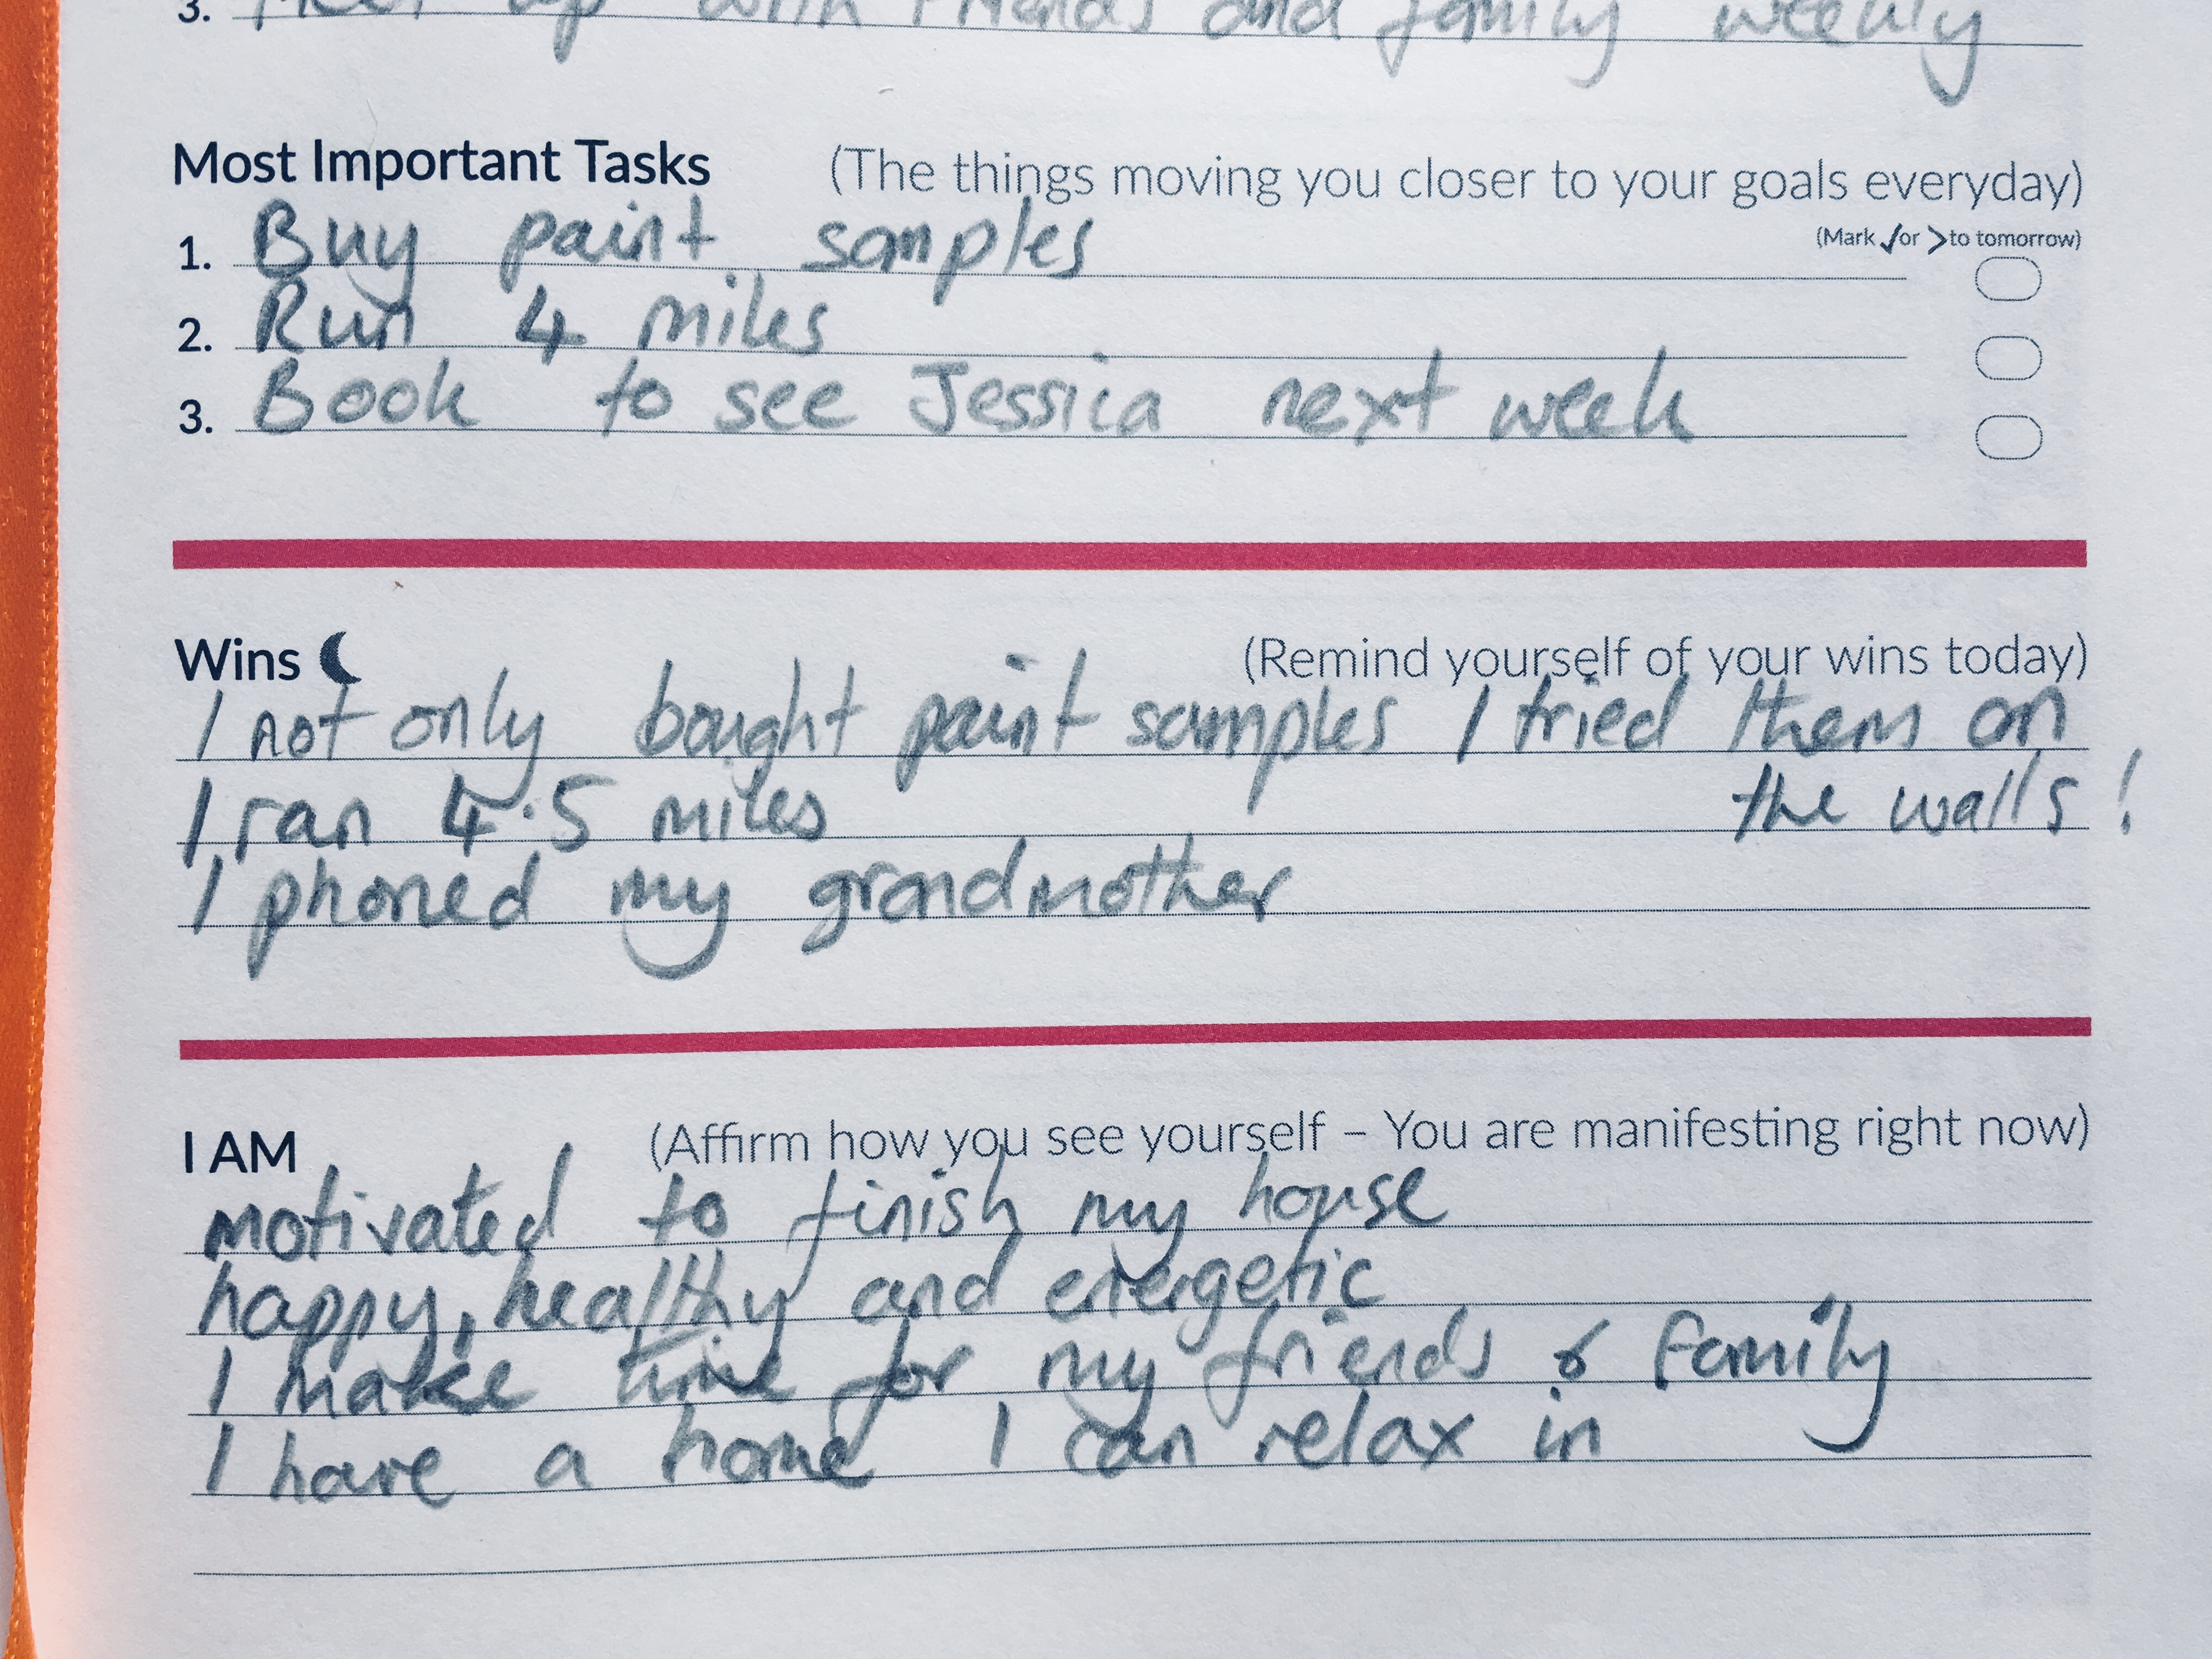 3. Meet up with friends and family weekly
Most Important Tasks (The things moving you closer to your goals everyday)
(Mark ✓or >to tomorrow)
1. Buy paint samples
2. Run 4 miles
3. Book to see Jessica next week
Wins (Remind yourself of your wins today)
I not only bought paint samples I tried them on
the walls!
I ran 4.5 miles
I phoned my grandmother
I AM (Affirm how you see yourself – You are manifesting right now)
motivated to finish my house
happy, healthy and energetic
I make time for my friends & family
I have a home I can relax in